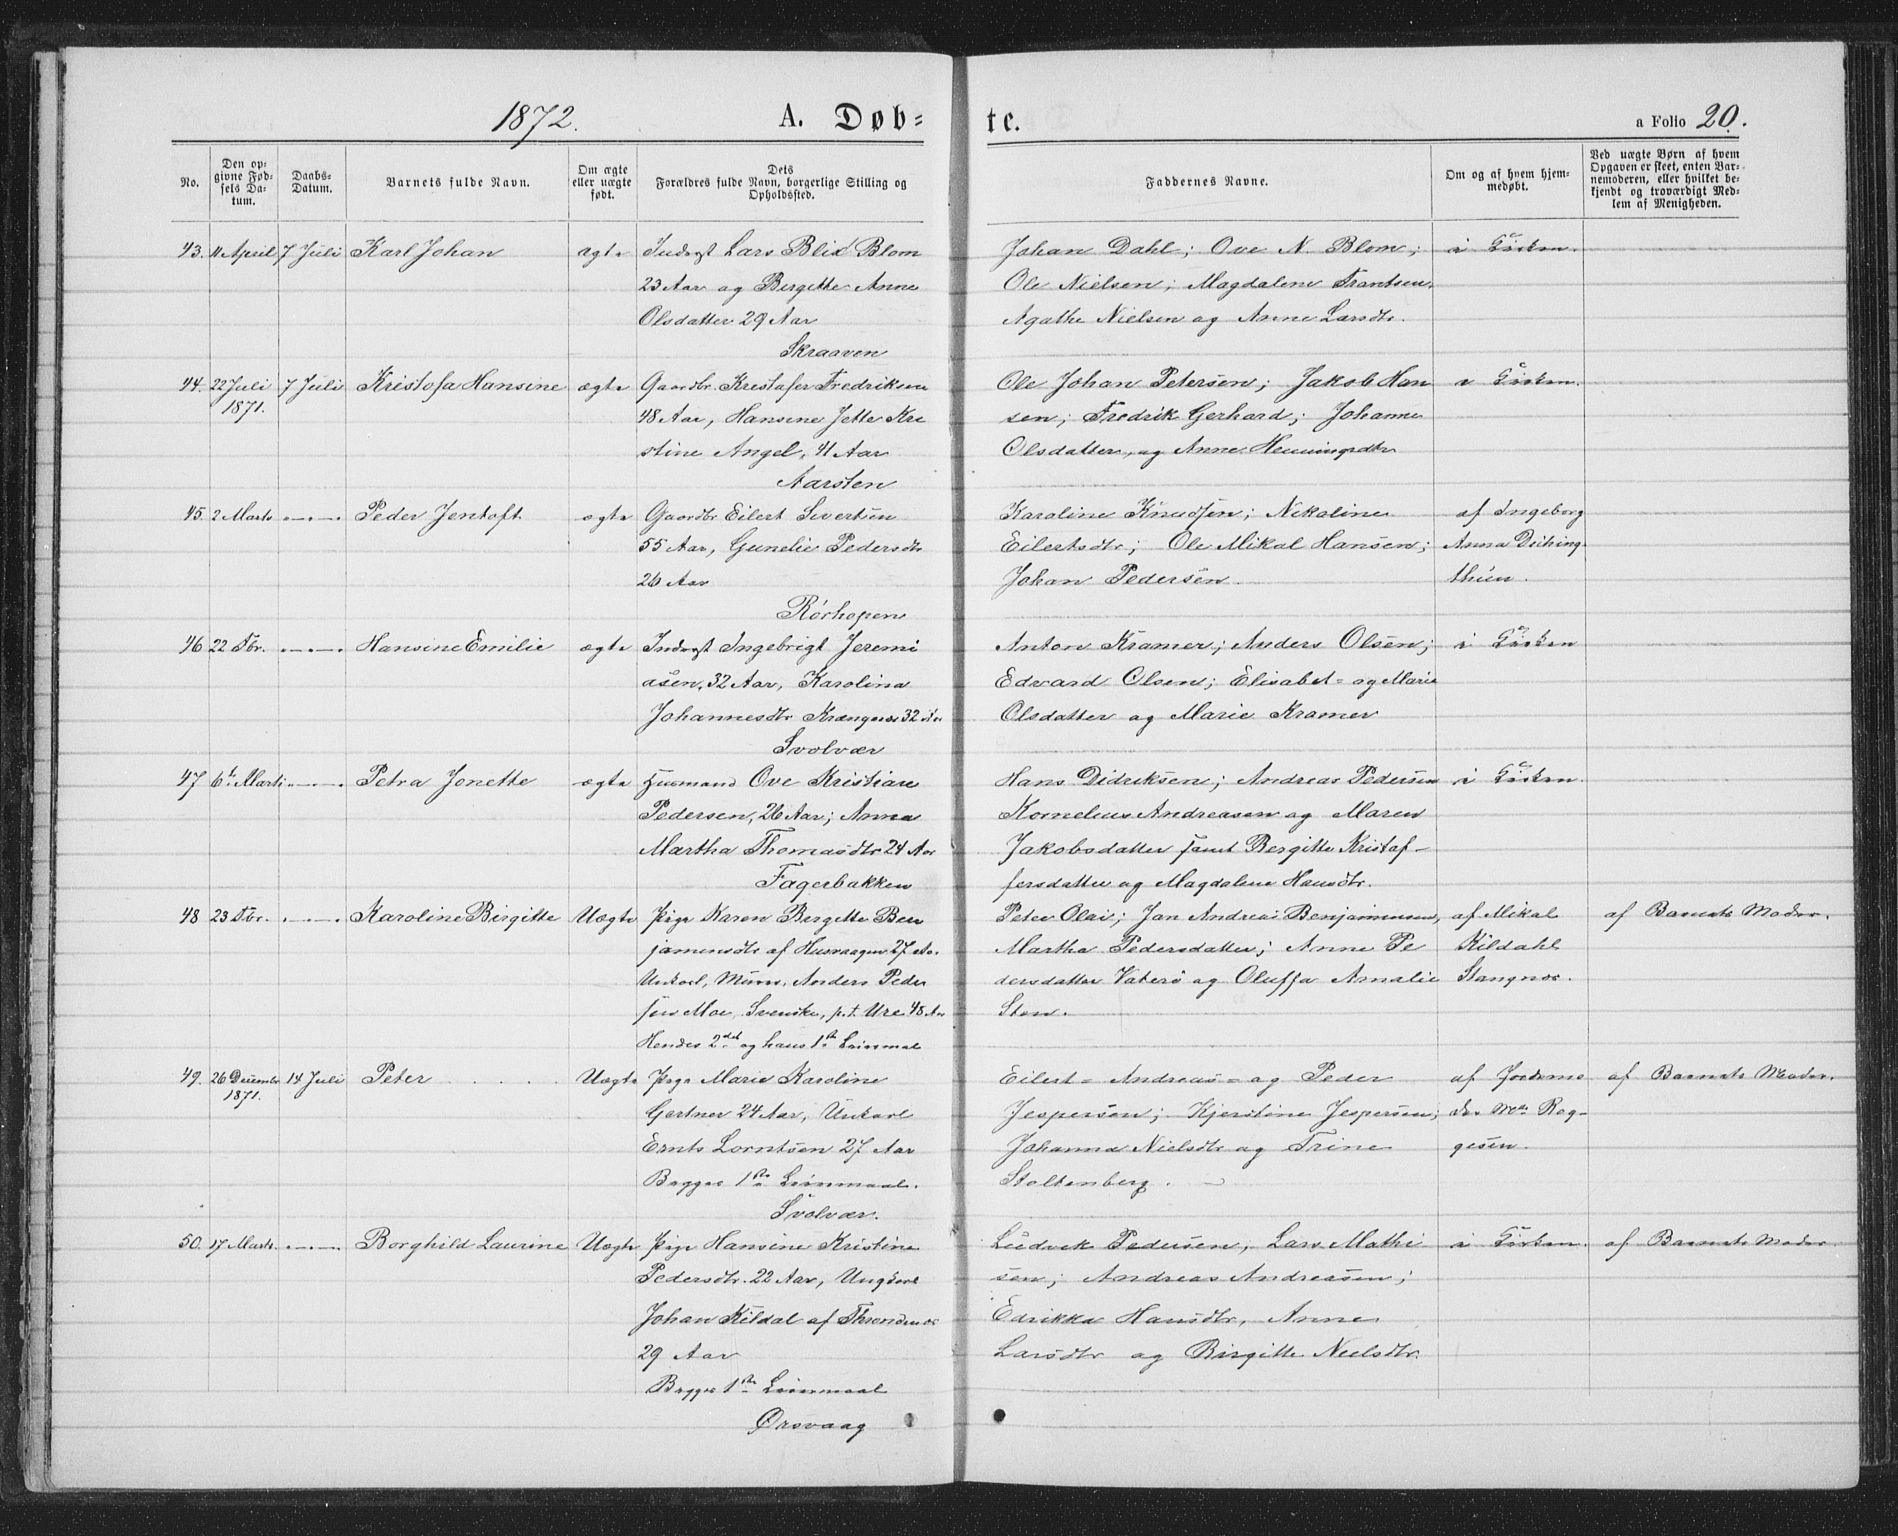 1872. A. Døb=
te.
a Folio 20.
No.
Den op=
givne Fød=
sels Da=
tum.
Daabs=
Datum.
Barnets fulde Navn.
Om ægte
eller uægte
født.
Dets
Forældres fulde Navn, borgerlige Stilling og
Opholdssted.
Faddernes Navne.
Om og af hvem hjem=
medøbt.
Ved uægte Børn af hvem
Opgaven er skeet, enten Bar=
nemoderen, eller hvilket be=
kjendt og troværdigt Med=
lem af Menigheden.
43. 11 April 7 Juli Karl Johan ægte Inderst Lars Blix Blom
23 Aar og Bergitte Anne
Olsdatter 29 Aar
Skraaven
Johan Dahl; Ove N. Blom;
Ole Nielsen; Magdalene Frantsen,
Agathe Nielsen og Anne Larsdtr.
i Kirken.
44. 22 Juli 7 Juli Kristofa Hansine ægte Gaardbr. Kristafer Fredriksen
1871.
48 Aar, Hansine Jette Kri
stine Angel, 41 Aar
Aarsten
Ole Johan Petersen; Jakob Han
sen; Fredrik Gerhard; Johanne
Olsdatter, og Anne Henningsdtr
i Kirken.
45. 2 Marts Peder Jentoft ægte Gaardbr Eilert Sivertsen
55 Aar, Gunelie Pedersdtr
26 Aar
Rørhopen
Karoline Knudsen; Nikoline
Eilertsdtr; Ole Mikal Hansen;
Johan Pedersen.
af Ingeborg
Anna Dithing
46 22 Fbr. Hansine Emilie ægte Inderst Ingebrigt Jeremi
asen, 32 Aar, Karolina
Johannesdtr Krængsnes 32 Aar
Svolvær
Anton Kramer; Anders Olsen;
Edvard Olsen; Elisabet= og Marie
Olsdatter og Marie Kramer
i Kirken
47 6te Marts Petra Jonette ægte Husmand Ove Kristian
Pedersen, 26 Aar; Anna
Martha Thomasdtr 24 Aar
Fagerbakken
Hans Didriksen; Andreas Pedersen
Kornelius Andreasen og Maren
Jakobsdatter samt Bergitte Kristof-
fersdatter og Magdalene Hansdtr.
i Kirken.
48 23 Fbr. Karoline Birgitte Uægte Pige Karen Bergette Ben
jamensdtr af Husvaagen 27 Aar.
Unkarl, Murer, Anders Peder
sen Moe, Svenske, p.t. Ure 48 Aar
Hendes 2det og hans 1ste Leiermaal
Peter Olai; Jan Andreas Benjaminsen,
Martha Pedersdatter; Anne Pe
dersdatter Vaterö og Oluffa Amalie
Sten.
af Mikal
Kildahl
Stangnes.
af Barnets Moder.
49. 26 Decembr 14 Juli Peter Uægte Pige Marie Karoline
1871.
Gertner 24 Aar, Unkarl
Ernts Lorntsen 27 Aar
Begges 1ste Leiermaal.
Svolvær.
Eilert= Andreas= og Peder
Jespersen; Kjerstine Jespersen;
Johanna Nielsdtr og Trine
Stoltenberg.
af Jordemo
der Mdm Reg-
gesen.
af Barnets Moder.
50. 17 Marts. Borghild Laurine Uægte Pige Hansine Kristine
Pedersdtr. 22 Aar, Ungkarl
Johan Kildal af Throndenes
29 Aar
Begges 1ste Leiermaal
Ørsvaag
Ludvek Pedersen, Lars Mathi
sen; Andreas Andreasen;
Edrikka Hansdtr, Anne
Larsdtr og Birgitte Nielsdtr.
i Kirken.
af Barnets Moder